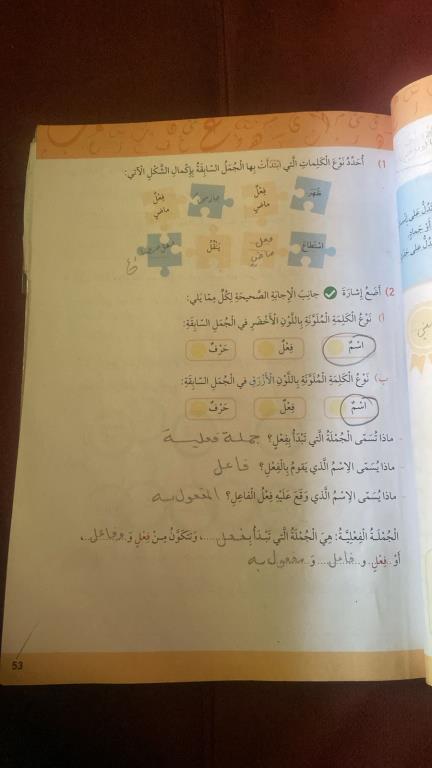 1) أُحَدِّدُ نَوْعَ الْكَلِماتِ الَّتي ابْتَدَأَتْ بِها الْجُمَلُ السّابِقَةُ بِإِكْمالِ الشَّكْلِ الْآتي:
ظَهَرَ فِعْلٌ ماضٍ مارسَ فِعْلٌ ماضٍ
اسْتَطاعَ فعل ماضي يَنْقُلُ فعل
2) أَضَعُ إِشارَةَ جانِبَ الْإِجابَةِ الصَّحيحَةِ لِكُلٍّ مِمّا يَلي:
أ) نَوْعُ الْكَلِمَةِ الْمُلَوَّنَةِ بِاللَّوْنِ الْأَخْضَرِ في الْجُمَلِ السّابِقَةِ:
اسْمٌ فِعْلٌ حَرْفٌ
ب) نَوْعُ الْكَلِمَةِ الْمُلَوَّنَةِ بِاللَّوْنِ الْأَزْرَقِ في الْجُمَلِ السّابِقَةِ:
اسْمٌ فِعْلٌ حَرْفٌ
- ماذا تُسَمّى الْجُمْلَةُ الَّتي تَبْدَأُ بِفِعْلٍ؟ جملة فعلية
- ماذا يُسَمّى الِاسْمُ الَّذي يَقومُ بِالْفِعْلِ؟ فاعل
- ماذا يُسَمّى الِاسْمُ الَّذي وَقَعَ عَلَيْهِ فِعْلُ الْفاعِلِ؟ المفعول به
الْجُمْلَةُ الْفِعْلِيَّةُ: هِيَ الْجُمْلَةُ الَّتي تَبْدَأُ بِفعل، وَتَتَكَوَّنُ مِنْ فِعْلٍ وَ وفاعل،
أَوْ فِعْلٍ و فاعل وَ مفعول به
53